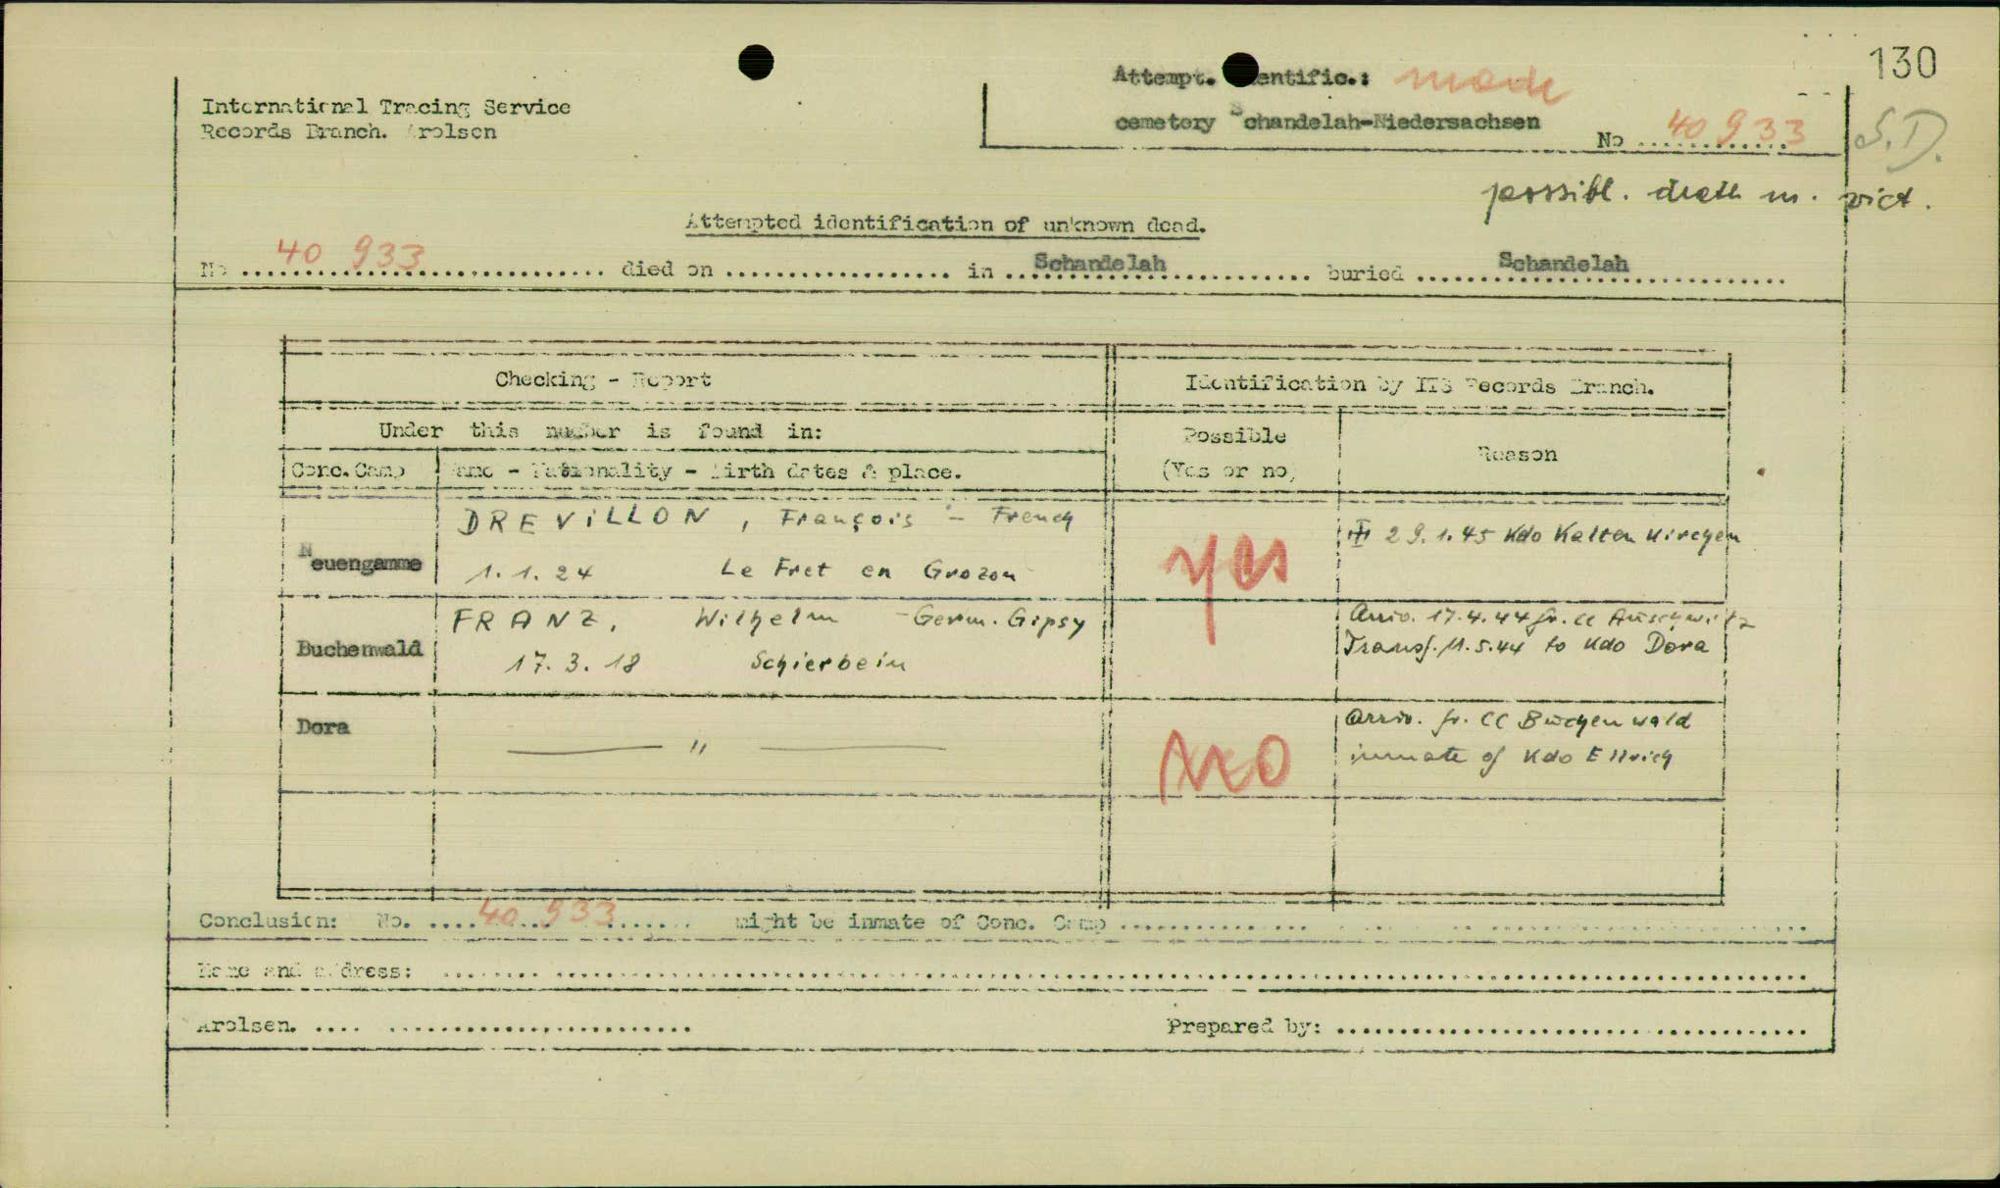 130
Attempt. entific.: made
International Tracing Service
Records Branch. Arolsen
cemetery Schandelah-Niedersachsen
No 40 933
S.D.
possibl. death m. vict.
Attempted identification of unknown dead.
No 40 933 died on .................. in Schandelah buried Schandelah
Checking - Report
Identification by ITS Records Branch.
Under this number is found in:
Possible
(Yes or no)
Reason
Conc. Camp
Name - Nationality - Birth dates & place.
Neuengamme
DREVILLON, François - French
1.1.24 Le Fret en Grozon
yes
29.1.45 Kdo Kalten Kirchen
Buchenwald
FRANZ, Wilhelm - Germ. Gipsy
17.3.18 Schierbein
Arriv. 17.4.44 fr. CC Auschwitz
Transf. 11.5.44 to Kdo Dora
Dora
——— " ———
No
Arriv. fr. CC Buchenwald
inmate of Kdo Ellrich
Conclusion: No. ....40 933....... might be inmate of Conc. Camp ..............
Name and address: ........
Arolsen. .... ........................
Prepared by: ....................................